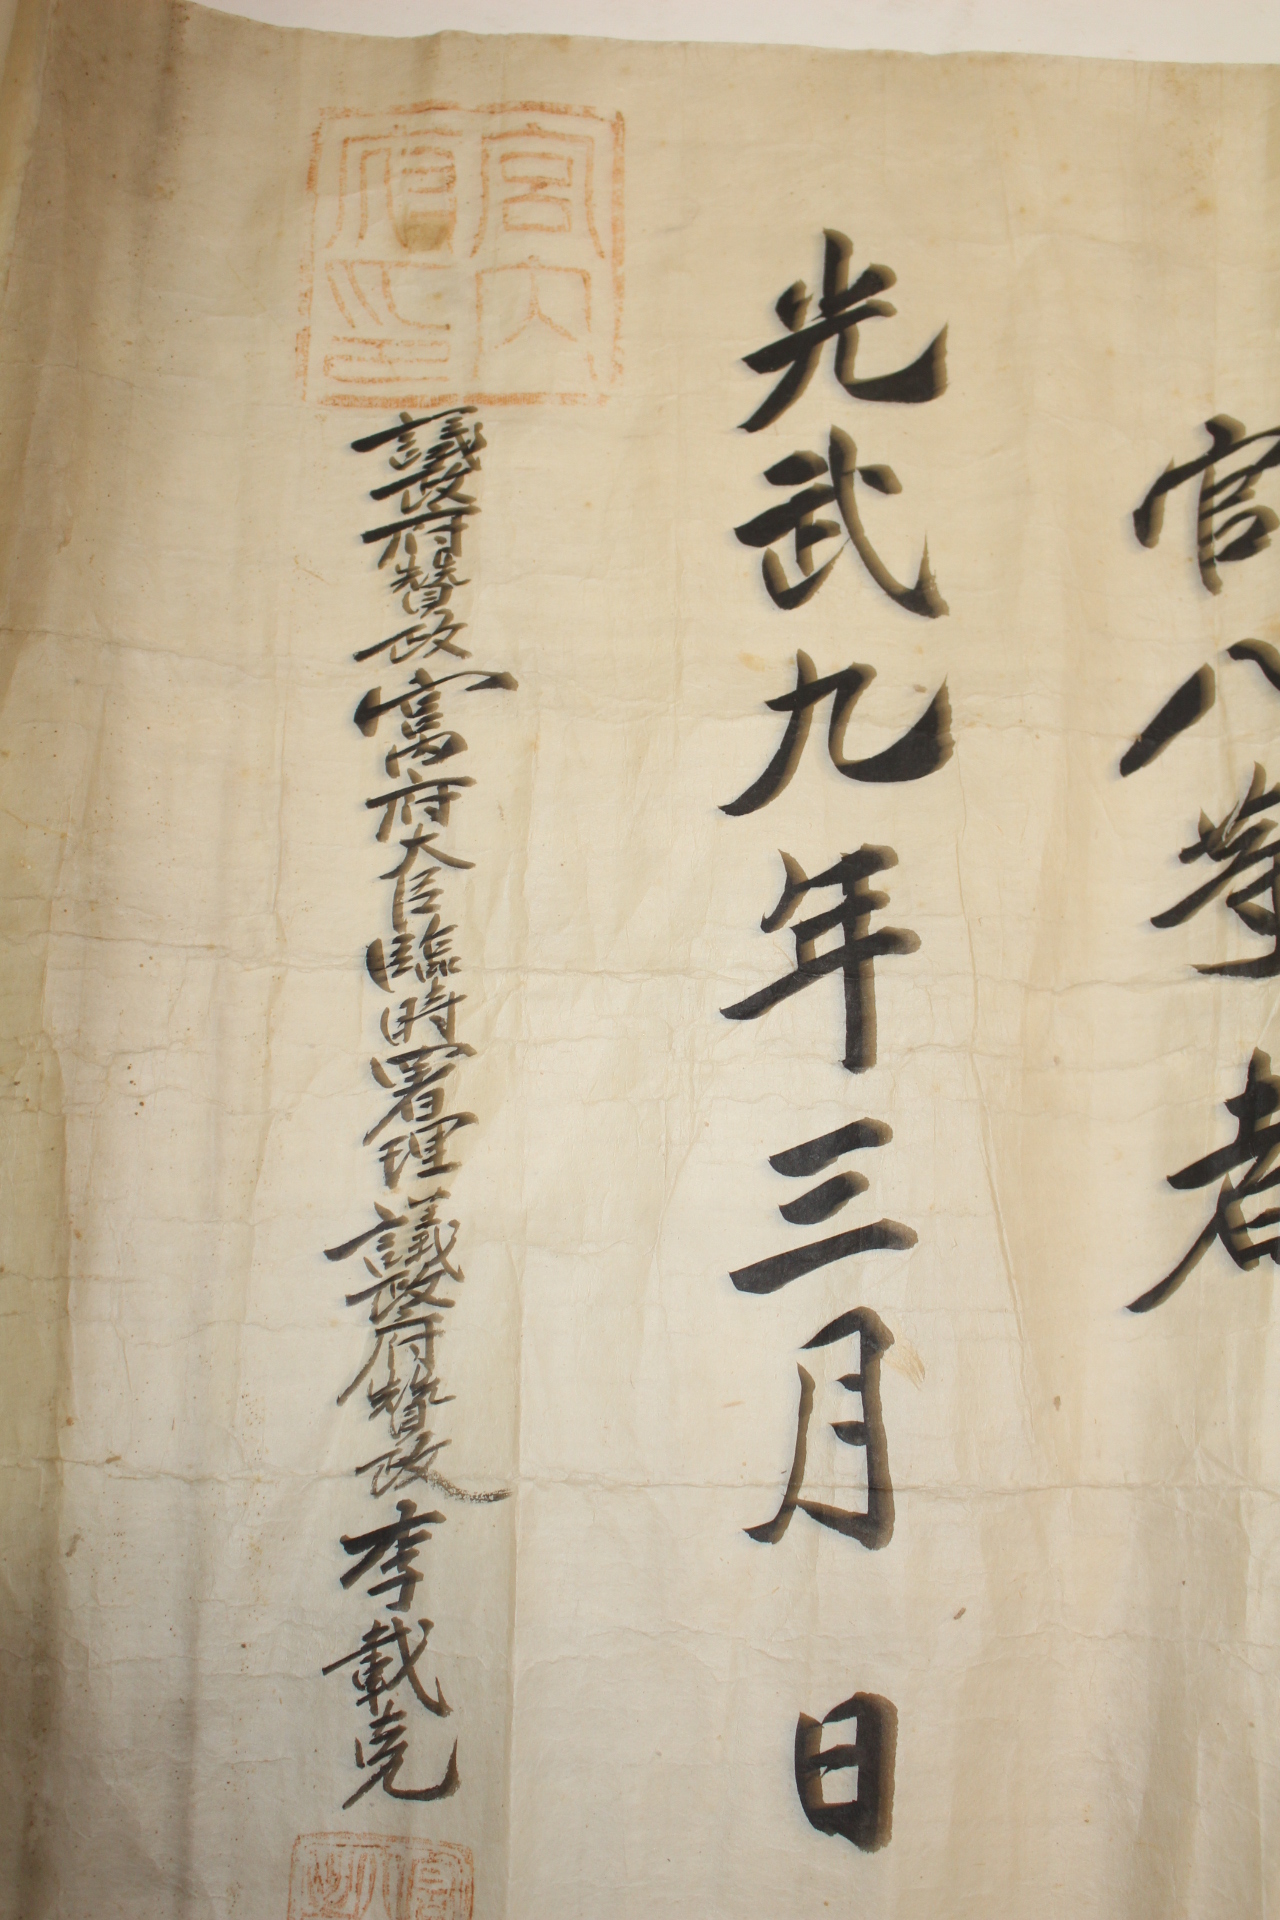 官八等者
光武九年三月 日
宮內府印
議政府贊政宮內府大臣臨時署理議政府贊政李載克